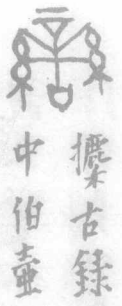 攗古録
中伯壺